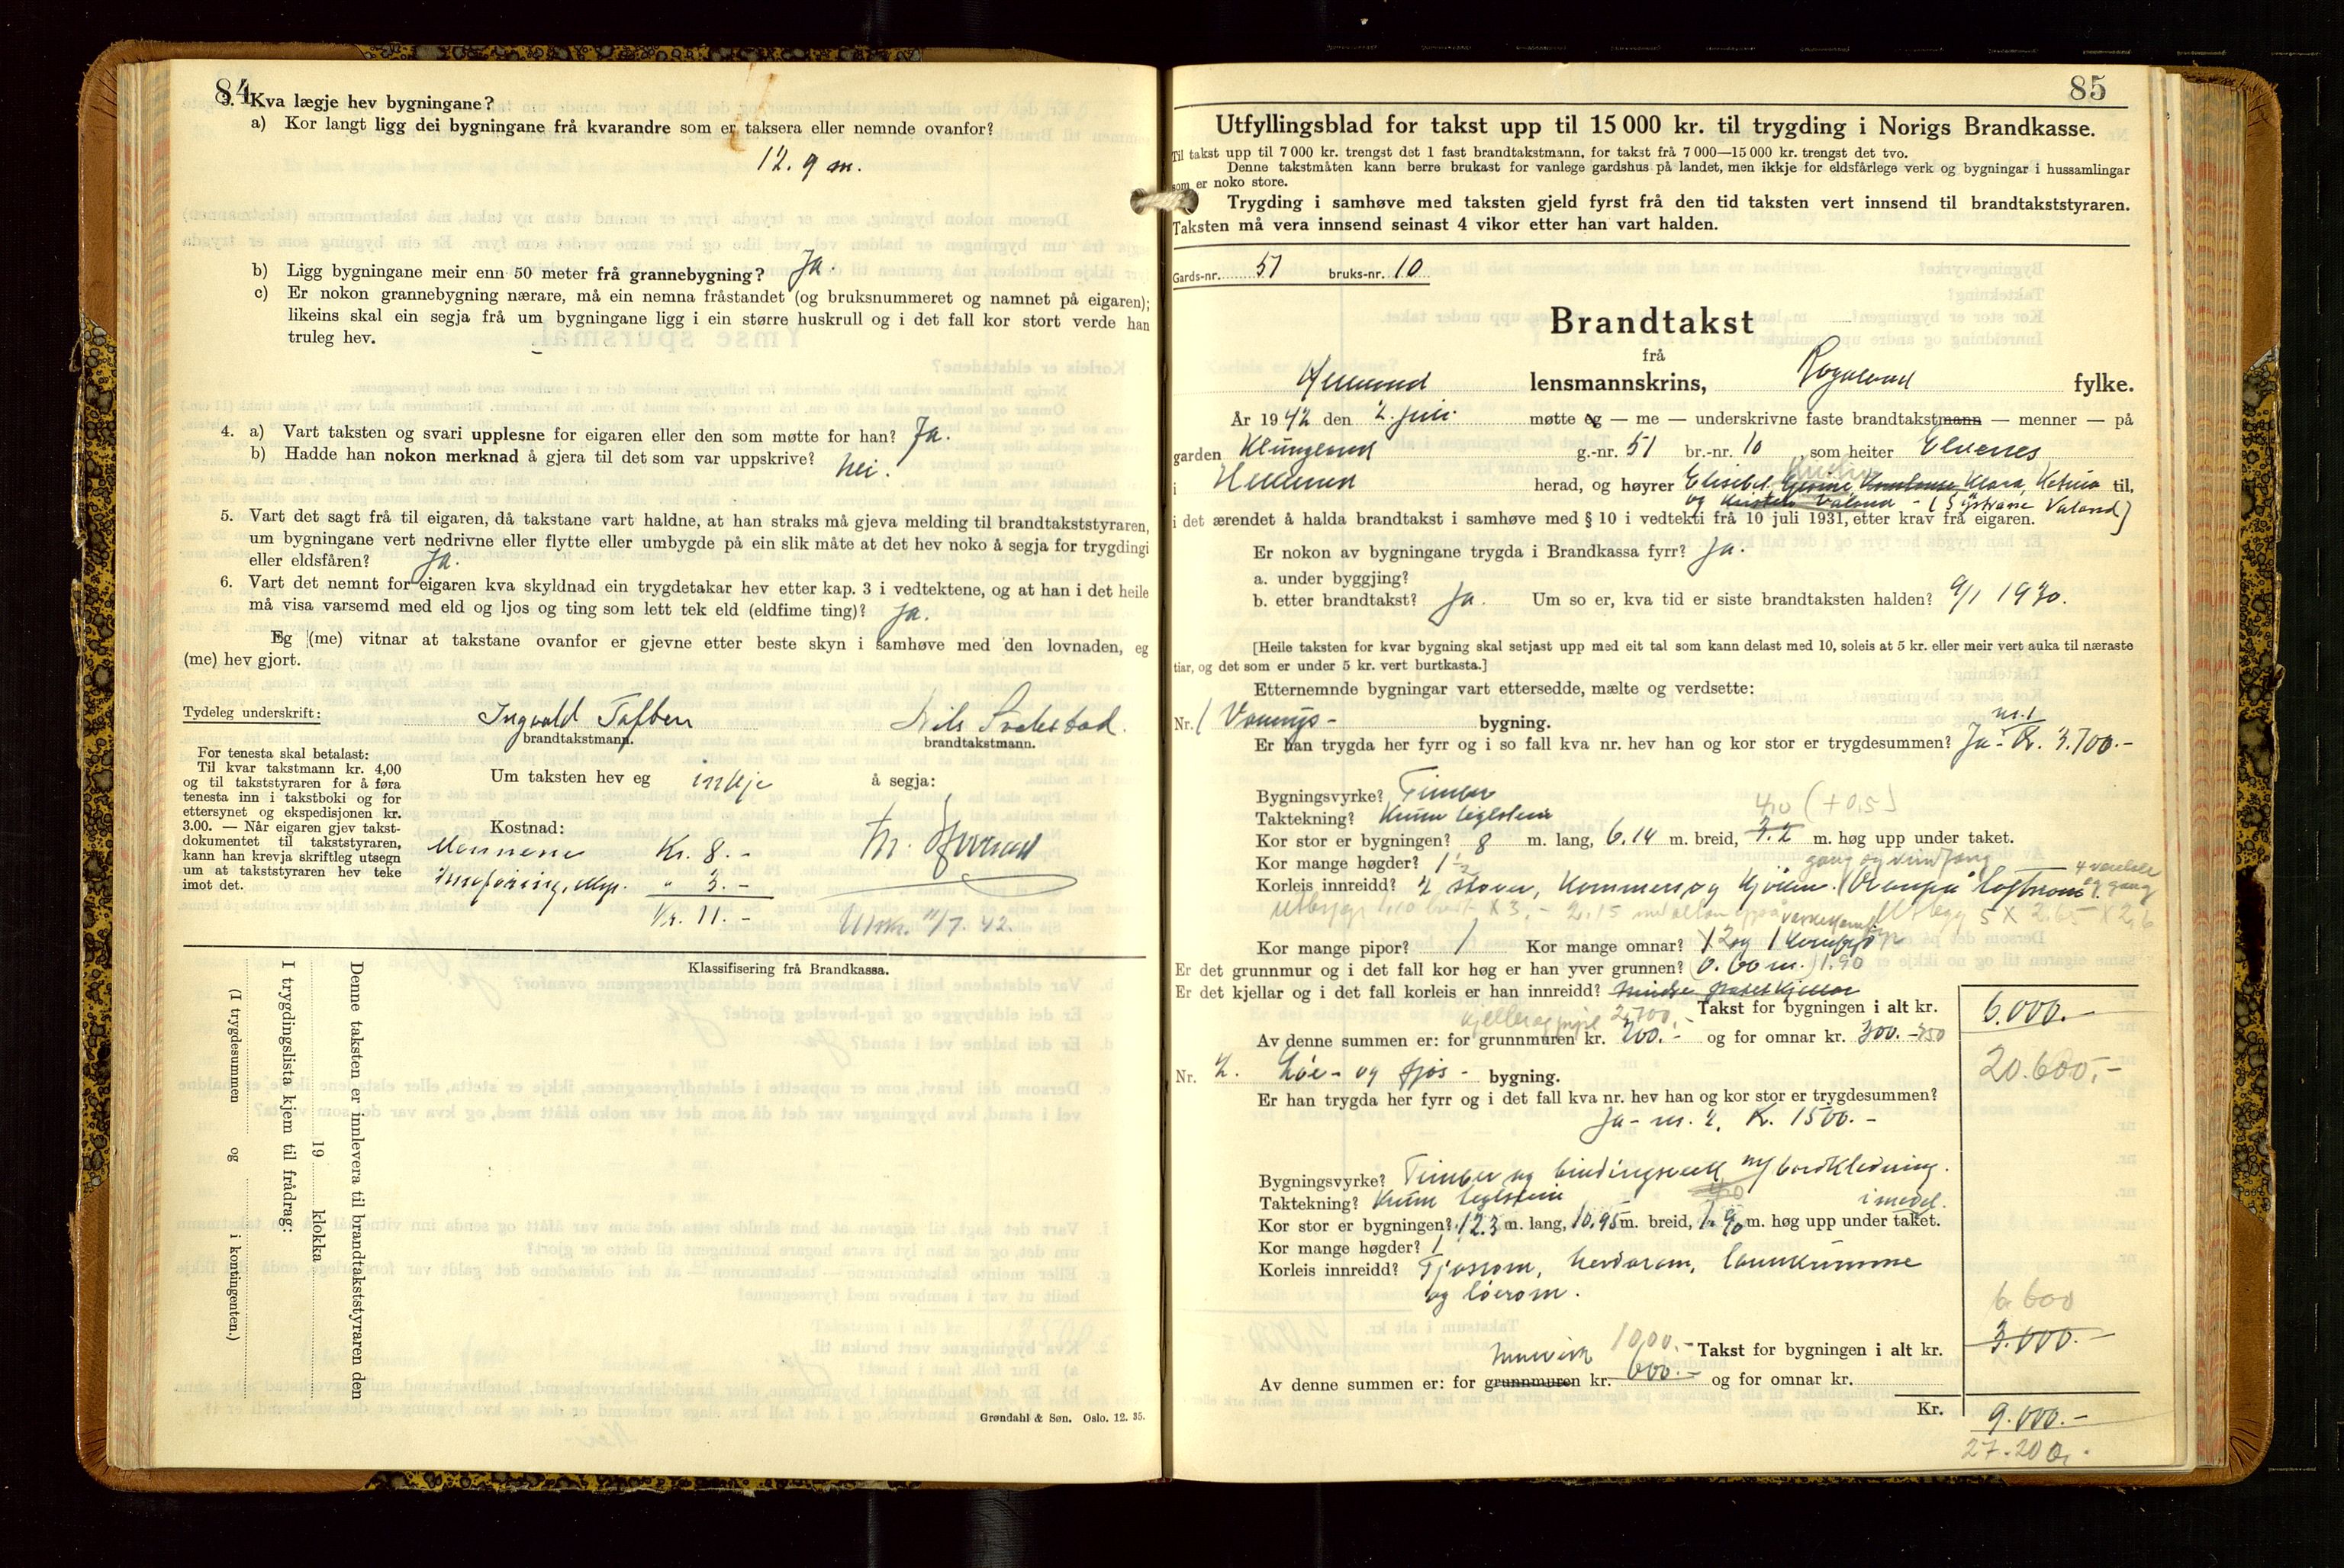 84
3. Kva lægje hev bygningane?
a) Kor langt ligg dei bygningane frå kvarandre som er taksera eller nemnde ovanfor?
12.9 m.
b) Ligg bygningane meir enn 50 meter frå grannebygning? Ja.
c) Er nokon grannebygning nærare, må ein nemna fråstandet (og bruksnummeret og namnet på eigaren);
likeins skal ein segja frå um bygningane ligg i ein større huskrull og i det fall kor stort verde han
truleg hev.
4. a) Vart taksten og svari upplesne for eigaren eller den som møtte for han? Ja.
b) Hadde han nokon merknad å gjera til det som var uppskrive? Nei.
5. Vart det sagt frå til eigaren, då takstane vart haldne, at han straks må gjeva melding til brandtakststyraren,
um bygningane vert nedrivne eller flytte eller umbygde på ein slik måte at det hev noko å segja for trygdingi
eller eldsfåren? Ja.
6. Vart det nemnt for eigaren kva skyldnad ein trygdetakar hev etter kap. 3 i vedtektene, og at han i det heile
må visa varsemd med eld og ljos og ting som lett tek eld (eldfime ting)? Ja.
Eg (me) vitnar at takstane ovanfor er gjevne etter beste skyn i samhøve med den lovnaden, eg
(me) hev gjort.
Tydeleg underskrift: Ingvald Nils
brandtakstmann. brandtakstmann.
For tenesta skal betalast:
Til kvar takstmann kr. 4,00
og til takststyraren for å føra
tenesta inn i takstboki og for
ettersynet og ekspedisjonen kr.
3.00. — Når eigaren gjev takst-
dokumentet til takststyraren,
kann han krevja skriftleg utsegn
um at takststyraren hev teke
imot det.
Um taksten hev eg inkje å segja:
Kostnad:
Mennene Kr. 8.-
Innføring, " 3.-
Kr. 11.-
11/7. 42.
Klassifisering frå Brandkassa.
Denne taksten er innlevera til brandtakststyraren den
19 klokka
I trygdingslista kjem til frådrag:
(I trygdesummen og i kontingenten.)
Grøndahl & Søn. Oslo. 12. 35.
85
Utfyllingsblad for takst upp til 15 000 kr. til trygding i Norigs Brandkasse.
Til takst upp til 7 000 kr. trengst det 1 fast brandtakstmann, for takst frå 7 000—15 000 kr. trengst det tvo.
Denne takstmåten kann berre brukast for vanlege gardshus på landet, men ikkje for eldsfårlege verk og bygningar i hussamlingar
som er noko store.
Trygding i samhøve med taksten gjeld fyrst frå den tid taksten vert innsend til brandtakststyraren.
Taksten må vera innsend seinast 4 vikor etter han vart halden.
Gards-nr. 51 bruks-nr. 10
Brandtakst
frå
lensmannskrins, Rogaland fylke.
År 1942 den 2. juli møtte eg — me — underskrivne faste brandtakstmann — menner — på
garden Klungland g.-nr. 51 br.-nr. 10, som heiter Elvenes
i Helleland herad, og høyrer Elisabet, Klara, Katrine til,
og Valand - (Systrane Valand)
i det ærendet å halda brandtakst i samhøve med § 10 i vedtekti frå 10 juli 1931, etter krav frå eigaren.
Er nokon av bygningane trygda i Brandkassa fyrr? Ja.
a. under byggjing?
b. etter brandtakst? Ja. Um so er, kva tid er siste brandtaksten halden? 9/1 1930.
[Heile taksten for kvar bygning skal setjast upp med eit tal som kann delast med 10, soleis at 5 kr. eller meir vert auka til næraste
tiar, og det som er under 5 kr. vert burtkasta.]
Etternemnde bygningar vart ettersedde, mælte og verdsette:
Nr. 1 Vånings- bygning.
Er han trygda her fyrr og i so fall kva nr. hev han og kor stor er trygdesummen? Ja - nr. 1 Kr. 3.700.-
Bygningsvyrke? Timber
Taktekning? Krum teglstein
4,10 (+0,5)
Kor stor er bygningen? 8 m. lang, 6.14 m. breid, 3.2 m. høg upp under taket.
Kor mange høgder? 1 1/2
gang og vindfang
Korleis innreidd? 2 stover, kammers og kjøken. Ovanpå loftsrom og gang
Kor mange pipor? 1 Kor mange omnar? 2 og 1 komfyr
Er det grunnmur og i det fall kor høg er han yver grunnen? (0.60 m.) 1.90
Er det kjellar og i det fall korleis er han innreidd? Mindre potetkjellar
Takst for bygningen i alt kr. 6.000.-
kjeller og pipe 2.700,-
Av denne summen er: for grunnmuren kr. 200.- og for omnar kr. 300.- 350
20.600,-
Nr. 2. Løe- og fjøs- bygning.
Er han trygda her fyrr og i det fall kva nr. hev han og kor stor er trygdesummen?
Ja - nr. 2. Kr. 1500.-
Bygningsvyrke? Timber og bindingsverk m/ bordkledning.
Taktekning? Krum teglstein
i medel.
Kor stor er bygningen? 12.3 m. lang, 10.95 m. breid, m. høg upp under taket.
Kor mange høgder? 1
Korleis innreidd? Fjøsrom, landkumme
og løerom.
6.600
Takst for bygningen i alt kr. 3.000.-
Murverk 1000.-
Av denne summen er: for grunnmuren kr. 600.- og for omnar kr.
Kr. 9.000.-
27.200.